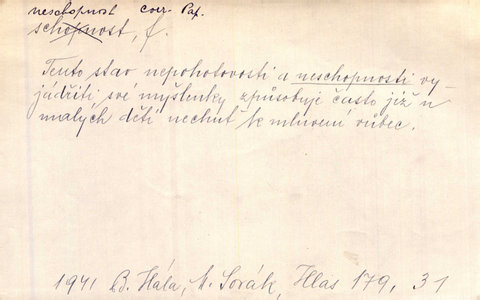 neschopnost corr. Paf.
schopnost, f.
Tento stav nepohotovosti a neschopnosti vy-
jádřiti své myšlenky způsobuje často již u
malých dětí nechuť ke mluvení vůbec.
1941 B. Hála, M. Sovák, Hlas 179, 31